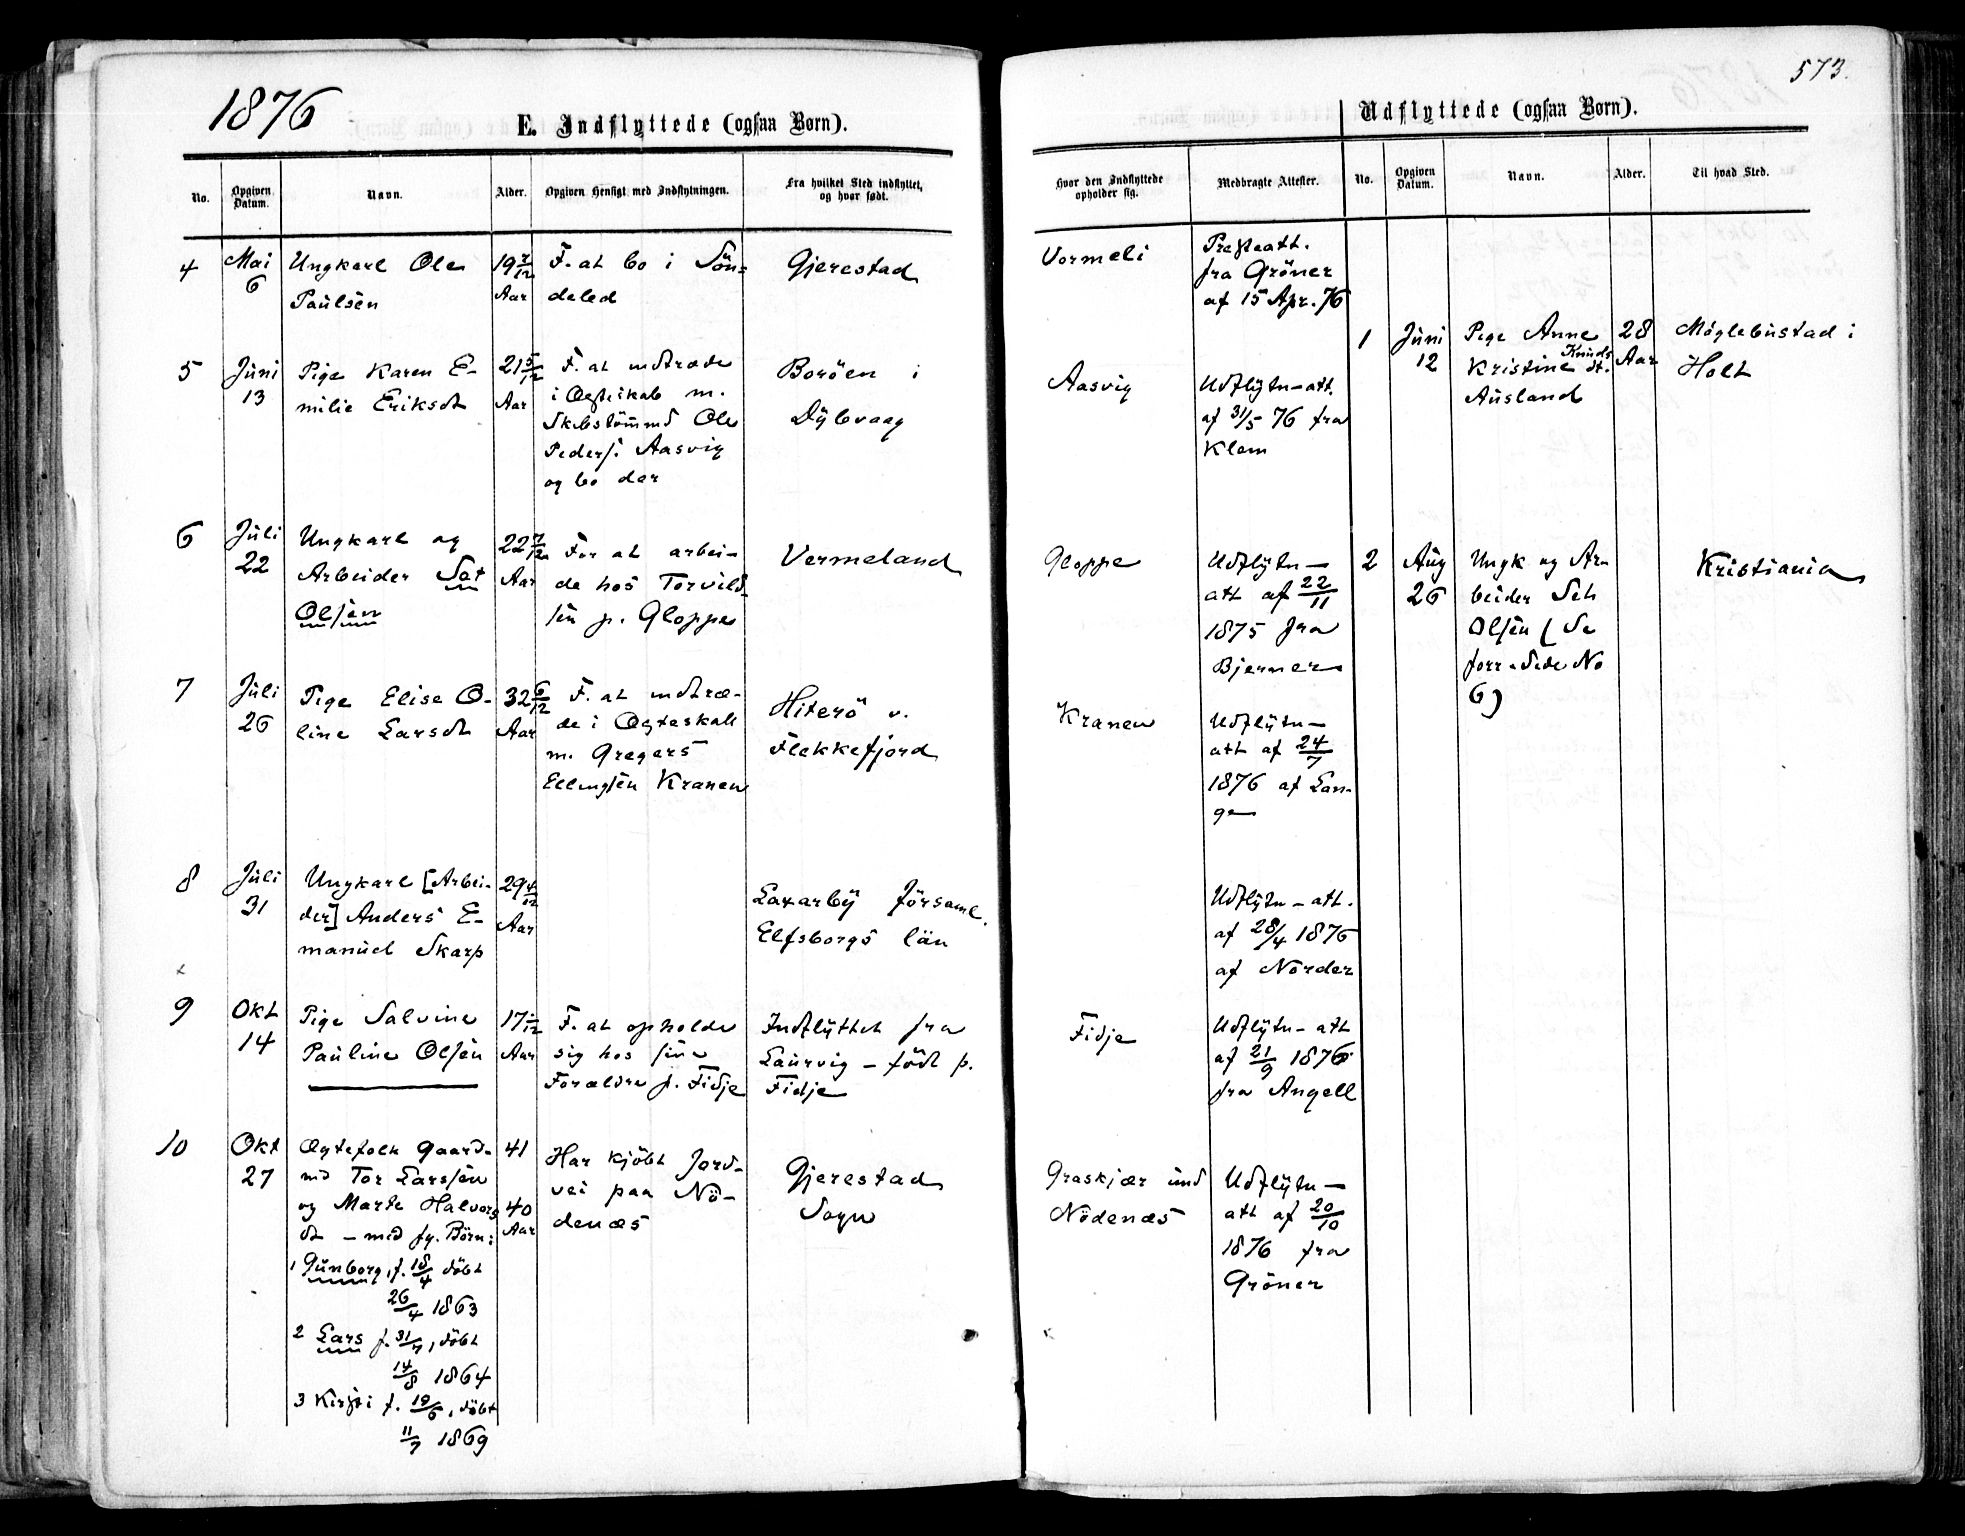 1876
573.
E. Indflyttede (ogsaa Børn).
Udflyttede (ogsaa Børn).
No.
Opgiven Datum.
Navn.
Alder.
Opgiven Hensigt med Indflytningen.
Fra hvilket Sted indflyttet, og hvor født.
Hvor den Indflyttede opholder sig.
Medbragte Attester.
No.
Opgiven Datum.
Navn.
Alder.
Til hvad Sted.
4
Mai
6
Ungkarl Ole
Paulsen
19
Aar
F. at bo i Sön=
deled
Gjerestad
Vormeli
Presteatt.
fra Gröner
af 15 Apr. 76
5
Juni
13
Pige Karen E-
milie Eriksdt
21 5/12
Aar
F. at indtræde
i Ægteskab m.
Skibstömmd Ole
Peders. Aasvig
og bo der
Boröen i
Dybvaag
Aasvig
Udflytn-att.
af 31/5 76 fra
Klem
6
Juli
22
Ungkarl og
Arbeider Set
Olsen
22 7/12
Aar
For at arbei-
de hos Torvild-
sen p. Gloppe
Vermeland
Gloppe
Udflytn-
att af 22/11
1875 fra
Bjermer
7
Juli
26
Pige Elise O-
line Larsdt
32 6/12
Aar
F. at indtræ-
de i Ægteskab
m. Gregers
Ellingsen Kranen
Hiterö v.
Flekkefjord
Kranen
Udflytn-
att af 24/7
1876 af Lan-
ge
8
Juli
31
Ungkarl [Arbei-
der] Anders E-
manuel Skarp
29 4/12
Aar
Laxarby Församl.
Elfsborgs län
Udflytn-att.
af 28/4 1876
af Norder
9
Okt
14
Pige Salvine
Pauline Olsen
17
Aar
F. at opholde
sig hos sine
Forældre p. Fidje
Indflyttet fra
Laurvig - född p.
Fidje
Fidje
Udflytn-att
af 21/9 1876
fra Angell
10
Okt
27
Ægtefolk Gaard-
md Tor Larssen
og Marte Halvors
dt - med fg. Börn:
1 Gunborg, f. 18/4 döbt
26/4 1863
2 Lars f. 31/7, döbt
14/8 1864
3 Kirsti f. 19/6, döbt
11/7 1869
41
40
Aar
Har kjöbt Jord-
vei paa Nö-
denæs
Gjerestad
Sogn
Graskjær und
Nödenæs
Udflytn-
att af 20/10
1876 fra
Gröner
1
Juni
12
Pige Anne
Kristine Knuds
dt.
Ausland
28
Aar
Möglebustad i
Holt
2
Aug
26
Ungk og Ar-
beider Set
Olsen (Se
forr. Side No
6)
Kristiania